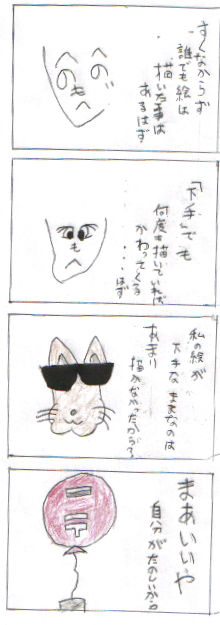 すくなからず
誰でも絵は
描いた事は
あるはず
へのへの
も
へ
「下手」でも
何度も描いていれば
かわってくる
・・・はず
も
へ
私の絵が
下手なままなのは
あまり
描かなかったから?
まあいいや
自分がたのしいから